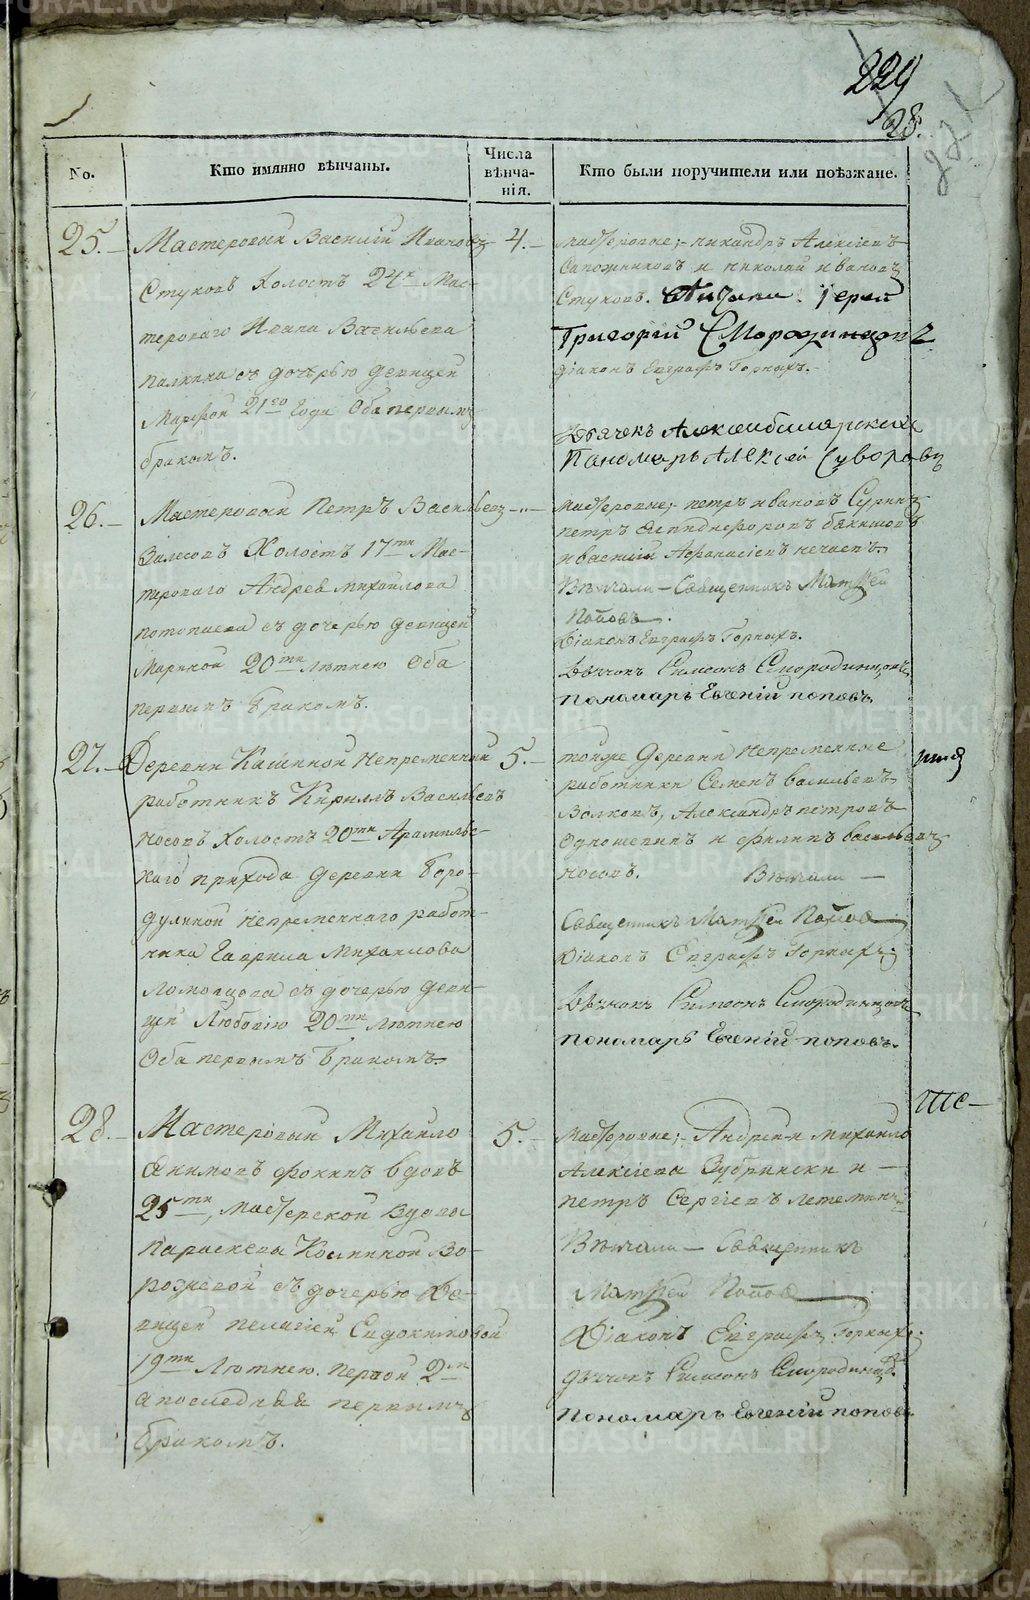 229
28.
No.
Кто имянно вѣнчаны.
Числа
вѣнча-
нія.
Кто были поручители или поѣзжане.
25.
Мастеровый Василій Ивановъ
Стуковъ Холостъ 24х Мас-
терового Ивана Васильева
Палкина съ дочерью девицей
Марфой 21го Года Оба первымъ
бракомъ.
4.
мастеровые,- никандръ Алексіевъ
Сапожниковъ и николай ивановъ
Стуковъ. Іерей
Григорій Смородинцовъ
діаконъ Евграфъ Горныхъ.
Дьячекъ Алексей
Пономарь Алексей Суворовъ
26.
Мастеровый Петръ Васильевъ
Залесовъ Холостъ 17ти Мас-
терового Андрея Михайлова
потописва съ дочерью девицей
Мариной 20ти Лѣтнею Оба
первымъ бракомъ.
-"-
мастеровые,- петръ ивановъ
петръ
и василій Афанасіевъ нечаевъ.
Вѣнчали - Священникъ Матѳей
Поповъ.
Діаконъ Евграфъ Горныхъ.
Дьячокъ Симеонъ Смородинцовъ
пономарь Евгеній поповъ.
27.
Деревни Кашиной Непременный
работникъ Кирилъ Васильевъ
Носовъ Холостъ 20ти Арамильс-
каго прихода деревни Боро-
дулиной непременнаго работ-
ника Гаврила Михайлова
Ломовцова съ дочерью деви-
цей Любовію 20ти Лѣтнею
Оба первымъ бракомъ.
5.
тойже деревни Непременные
работники Семенъ васильевъ
Волковъ, Александръ петровъ
Одношевинъ и филипъ васильевъ
носовъ. Вѣнчали -
Священникъ Матѳей Поповъ
Діаконъ Евграфъ Горныхъ.
Дьячокъ Симеонъ Смородинцовъ
пономарь Евгеній поповъ.
28.
Мастеровый Михайло
Якимовъ фокинъ вдовъ
25ти, мастерской вдовы
Параскевы Козминой Во-
роневой съ дочерью Де-
вицей пелагіей Евдокимовой
19ти Лѣтнею. первой 2м
а последняя первымъ
бракомъ.
5.
мастеровые,- Андрей и михайло
Алексіева Зубрински и -
петръ Сергіевъ
Вѣнчали - Священникъ
Матѳей Поповъ
Діаконъ Евграфъ Горныхъ.
дьячокъ Симеонъ Смородинцовъ
пономарь Евгеній поповъ.
METRIKI.GASO-URAL.RU